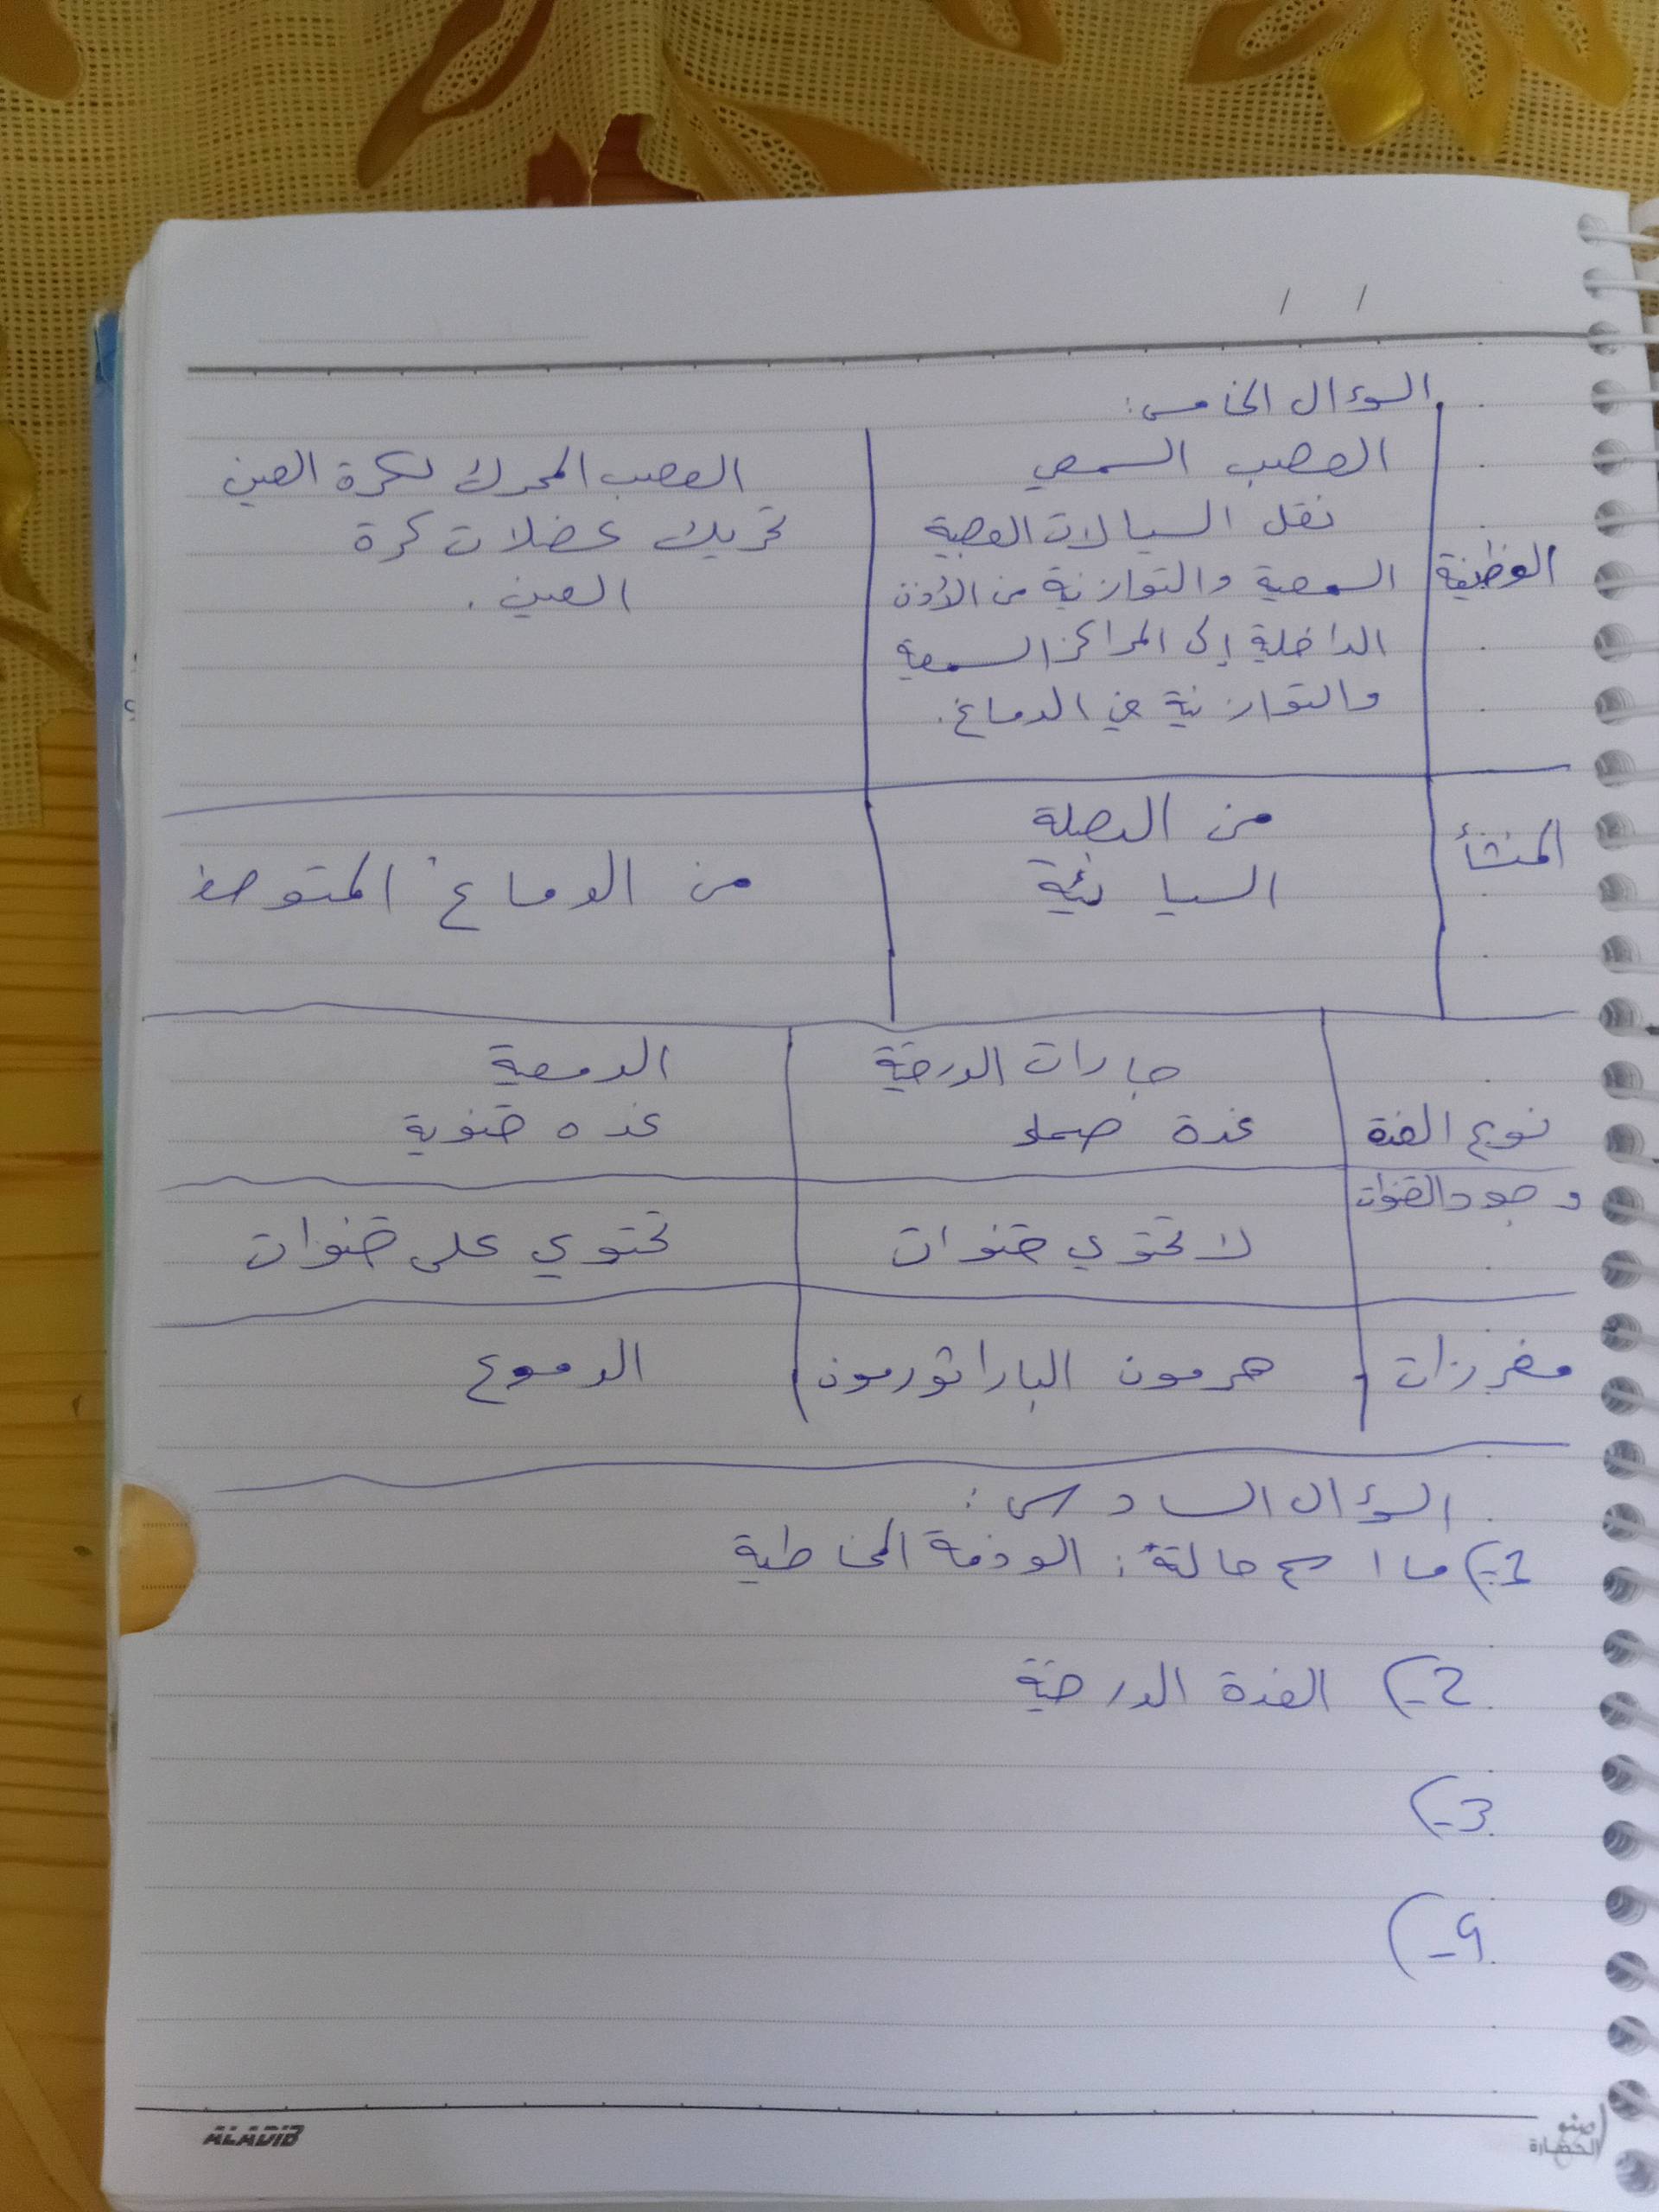 / /
السؤال الخامس:
العصب السمعي
العصب المحرك لكرة العين
الوظيفية
نقل السيالات العصبية
السمعية والتوازنية من الأذن
الداخلية إلى المراكز السمعية
والتوازنية في الدماغ.
تحريك عضلات كرة
العين.
المنشأ
من البصلة
السيائية
من الدماغ المتوسط
جارات الدرقية
الدمعية
نوع الغدة
غدة صماء
غده قنوية
وجود القنوات
لا تحتوي قنوات
تحتوي على قنوات
مفرزات
هرمون الباراثورمون
الدموع
السؤال السادس:
1-) ما اسم حالته: الوذمة المخاطية
2-) الغدة الدرقية
3-)
4-)
ALADIB
اصنع
الحضارة